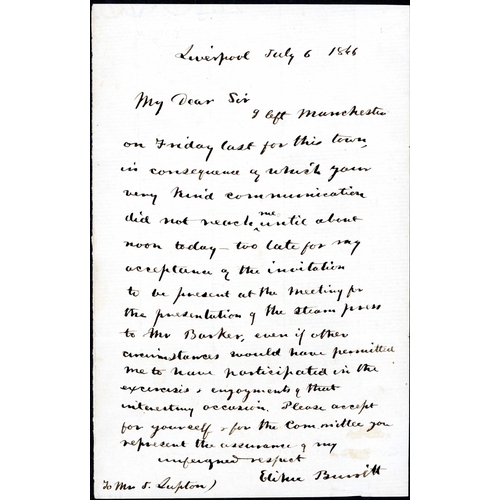 Liverpool July 6 1846
My Dear Sir
I left Manchester
on Friday last for this town,
in consequence of which your
very kind communication
did not reach me until about
noon today - too late for my
acceptance of the invitation
to be present at the meeting for
the presentation of the steam press
to Mr Barker, even if other
circumstances would have permitted
me to have participated in the
excercises & engoyments of that
interesting occasion. Please accept
for yourself & for the Committee you
represent the assurance of my
unfeigned respect
Elihu Burritt
To Mr J. Lupton)